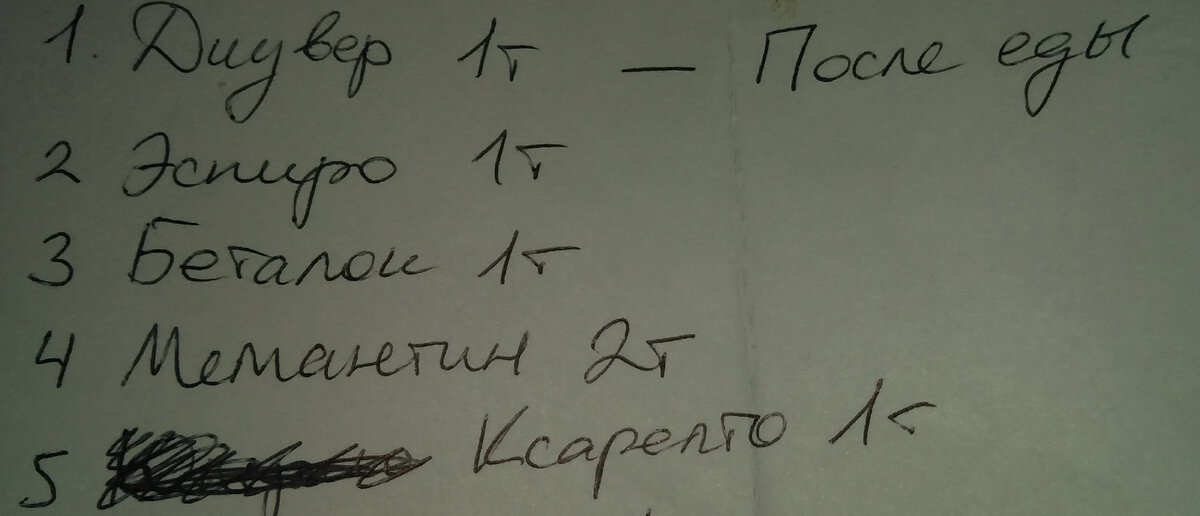 1. Диувер 1т — После еды
2 Эспиро 1т
3 Беталок 1т
4 Мемантин 2т
5 Ксарелто 1т